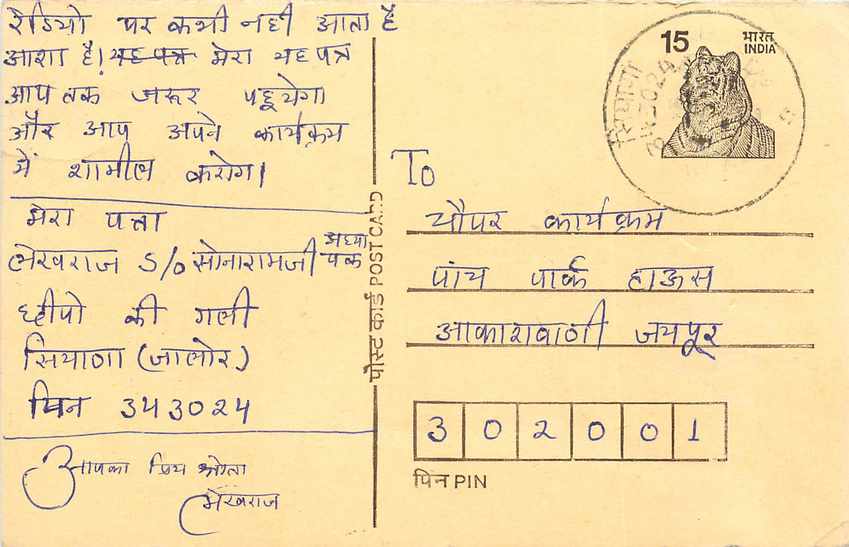 रेडियो पर कभी नही आता है
आशा है। यह पत्र मेरा यह पत्र
आप तक जरूर पहूचेगा
और आप अपने कार्यक्रम
में शामील करोगे।
मेरा पत्ता
लेखराज S/o सोनारामजी अध्यापक
छीपो की गली
सियाणा (जालोर)
पिन 343024
आपका प्रिय श्रोता
लेखराज
पोस्ट कार्ड POST CARD
15 भारत
INDIA
सियाणा
343024
To
चौपर कार्यक्रम
पांच पार्क हाऊस
आकाशवाणी जयपूर
302001
पिन PIN